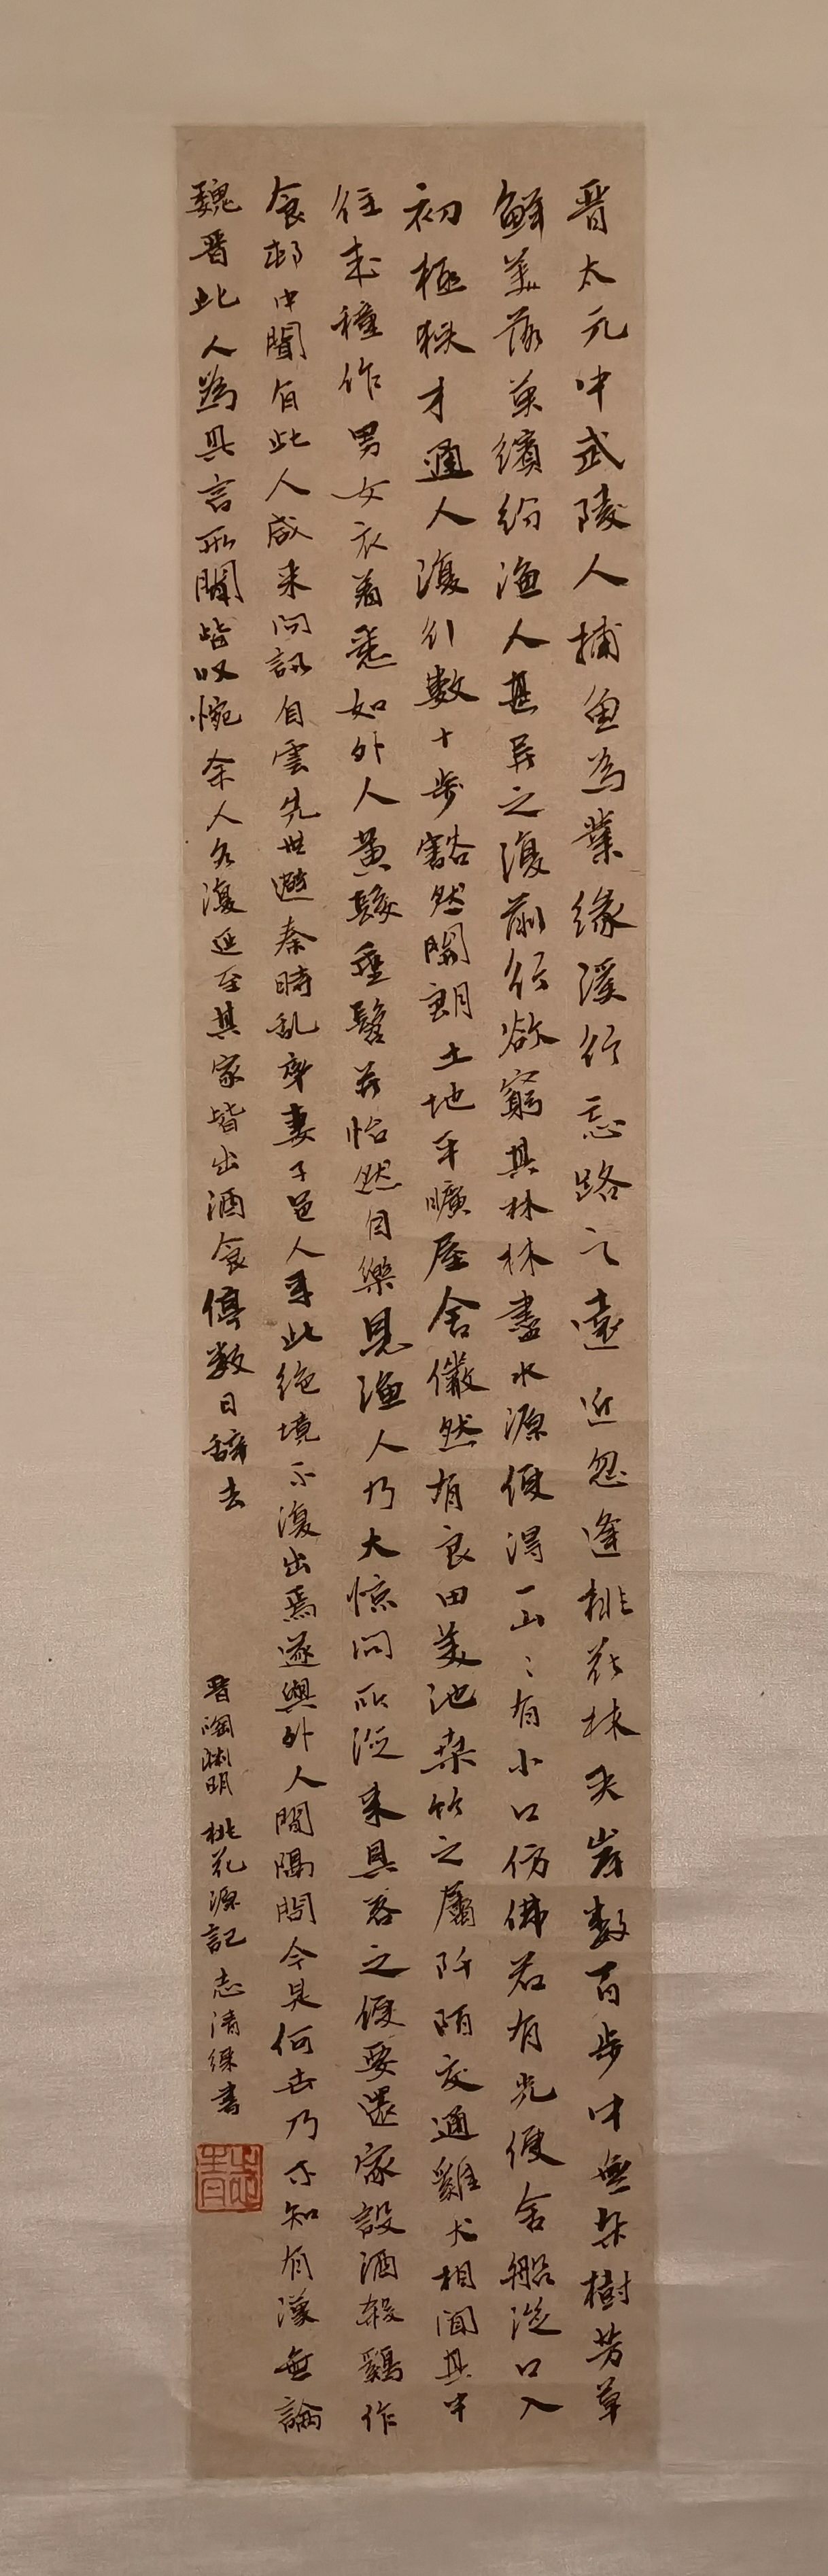 晋太元中武陵人捕魚為業缘溪行忘路之遠近忽逢桃花林夹岸数百步中無杂樹芳草
鲜美落英缤纷渔人甚异之復前行欲窮其林林盡水源便得一山〻有小口仿佛若有光便舍船從口入
初極狭才通人復行數十步豁然開朗土地平曠屋舍儼然有良田美池桑竹之屬阡陌交通雞犬相聞其中
往来種作男女衣着悉如外人黄髮垂髫并怡然自樂見渔人乃大惊問所從来具答之便要還家設酒殺鷄作
食邨中聞有此人咸来问訊自雲先世避秦時亂率妻子邑人来此绝境不復出焉遂與外人間隔問今是何世乃不知有漢無論
魏晋此人為具言所聞皆叹惋余人各復延至其家皆出酒食停数日辞去
晋陶淵明桃花源記志清綠書
志清